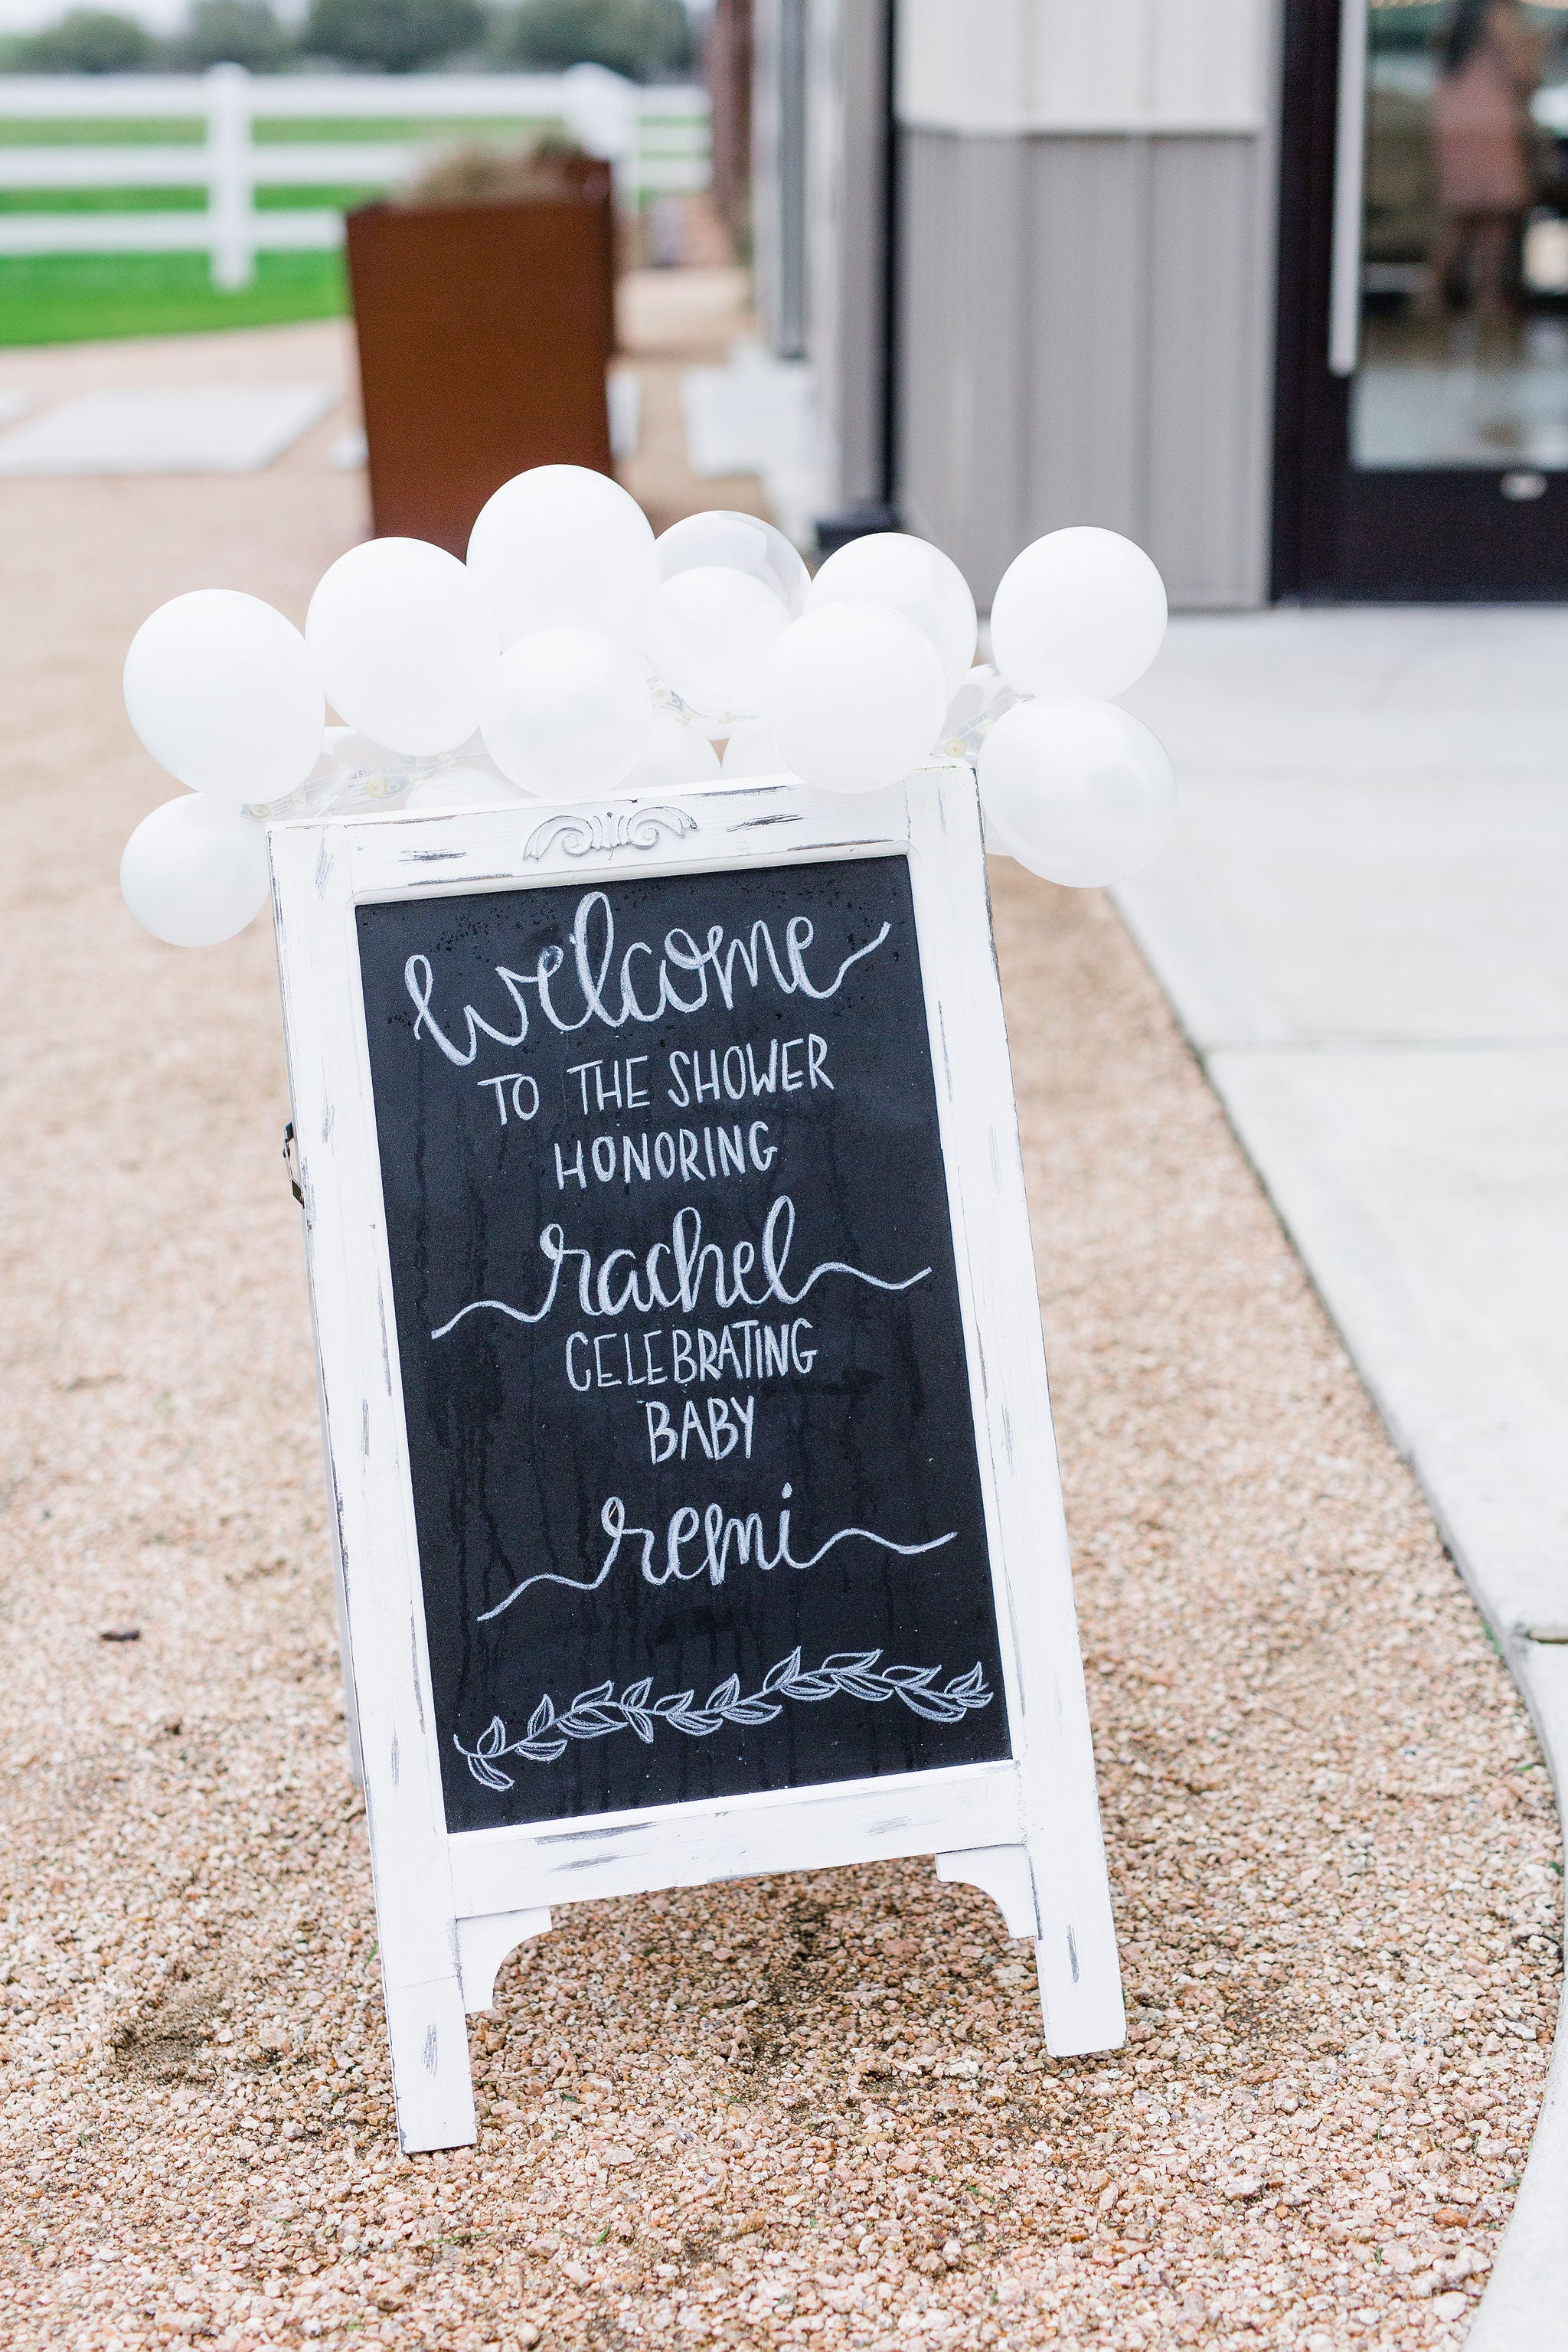 welcome
TO THE SHOWER
HONORING
rachel
CELEBRATING
BABY
remi